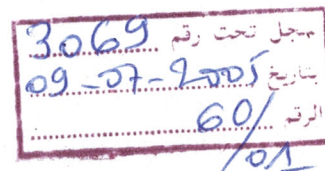 مجل تحت رقم 3069
بتاريخ 09-07-2005
الرقم 60/
/01